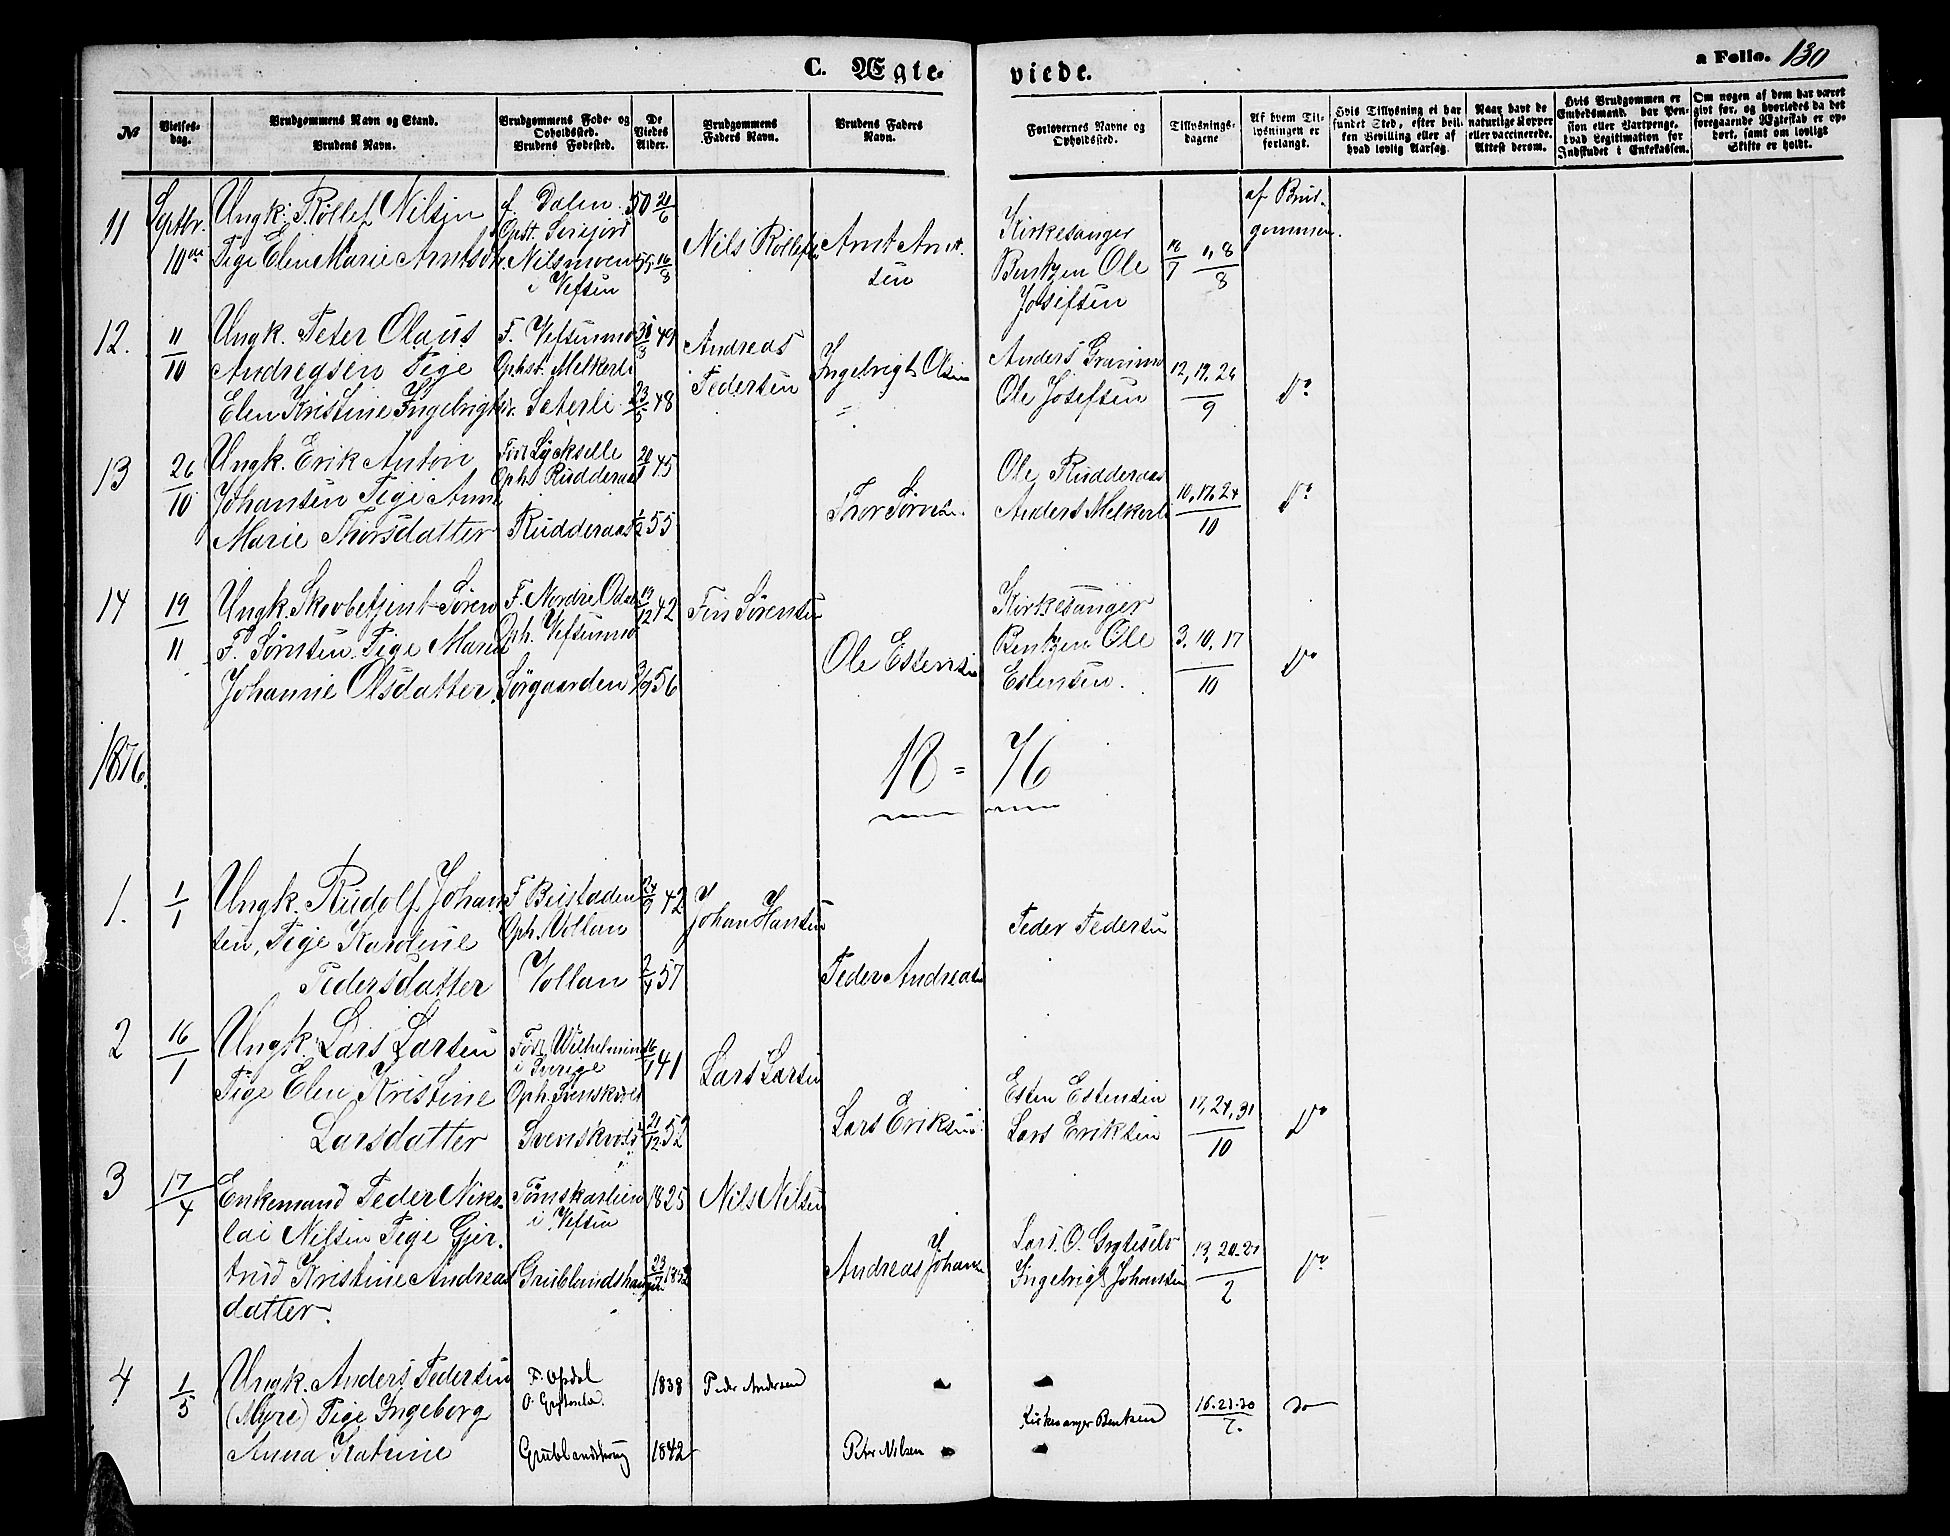 C. Ægte-
viede.
a Folio. 130
№
Vielses-
dag.
Brudgommens Navn og Stand.
Brudens Navn.
Brudgommens Føde- og
Opholdssted.
Brudens Fødested.
De
Viedes
Alder.
Brudgommens
Faders Navn.
Brudens Faders
Navn.
Forlovernes Navne og
Opholdssted.
Tillysnings-
dagene
Af hvem Til-
lysningen er
forlangt.
Hvis Tillysning ei har
fundet Sted, efter hvil-
ken Bevilling eller af
hvad lovlig Aarsag.
Naar havt de
naturlige Kopper
eller vaccinerede.
Attest derom.
Hvis Brudgommen er
Embedsmand, har Pen-
sion eller Vartpenge,
hvad Legitimation for
Indskudet i Enkekassen.
Om nogen af dem har været
givt før, og hvorledes da det
foregaaende Ægteskab er op-
hørt, samt om lovligt
Skifte er holdt.
11
Septbr.
10de
Ungk: Røllef Nilsen
Pige Elen Marie Arntsdtr.
f. Dalen
Opst.
Nilsmoen
i Vefsen
50 21/6
55 16/8
Nils Røllefsen
Arnt Arnt-
sen
Kirkesanger
Bentzen Ole
Josefsen
18/7 1, 8/8
af Brud-
gommen.
12.
11/10
Ungk. Peter Olaus
Andreasen Pige
Elen Kristine Ingebrigtsdtr.
F. Vefsenmo
Ophst. Melkerli
Seterli
31/3 49
23/5 48
Andreas
Pedersen
Ingebrigt Olsen
Anders Granmo
Ole Josefsen
12, 19, 26/9
Do
13
26/10
Ungk. Erik Anton
Johansen Pige Anne
Marie Thorsdatter
Fød Lycksele
Ophs Rudderaas
Rudderaas
20/1 45
1/2 55
Thor Sørnsen.
Ole Rudderaas
Anders Melkerli
10, 17, 24/10
Do
14
19/11
Ungk. Skovbetjent Søren
F. Sørnsen Pige Maria
Johanne Olsdatter.
F. Nordre Odal
Oph. Vefsenmo
Sørgaarden
19/12 42
3/9 56
Fin Sørensen
Ole Estensen
Kirkesanger
Bentzen Ole
Estensen.
3. 10, 17/10
Do
1876.
18 = 76
1.
1/1
Ungk. Rudolf Johan-
sen, Pige Karoline
Pedersdatter
F Bustaden
Oph. Vollan
Vollan
24/9 42
2/4 57
Johan Hansen
Peder Andreas.
Peder Pedersen
2
16/1
Ungk. Lars Larsen
Pige Elen Kristine
Larsdatter
Fød Wilhelmina
i Sverige
Oph. Svenskvold
Svenskvold
16/1 41
21/12 52
Lars Larsen
Lars Eriksen
Esten Estensen
Lars Eriksen
17, 24, 31/10
Do
3
17/4
Enkemand Peder Niko-
lai Nilsen Pige Gjer-
trud Kristine Andreas
datter.
Tømskarlien
i Vefsen
Grublandshaug
1825
23/7 1852
Nils Nilsen
Andreas Johans.
Lars. O. Gryteselv
Ingebrigt Johansen
13, 20, 27/2
Do
4
1/5
Ungk. Anders Pedersen
(Myre) Pige Ingeborg
Anna Katrine
F. Opdal
O. Grytesela.
Grublandhaug
1838
1842
Peder Andersen
Peter Nilsen
Kirkesanger Bentsen
16. 23. 30/7.
do